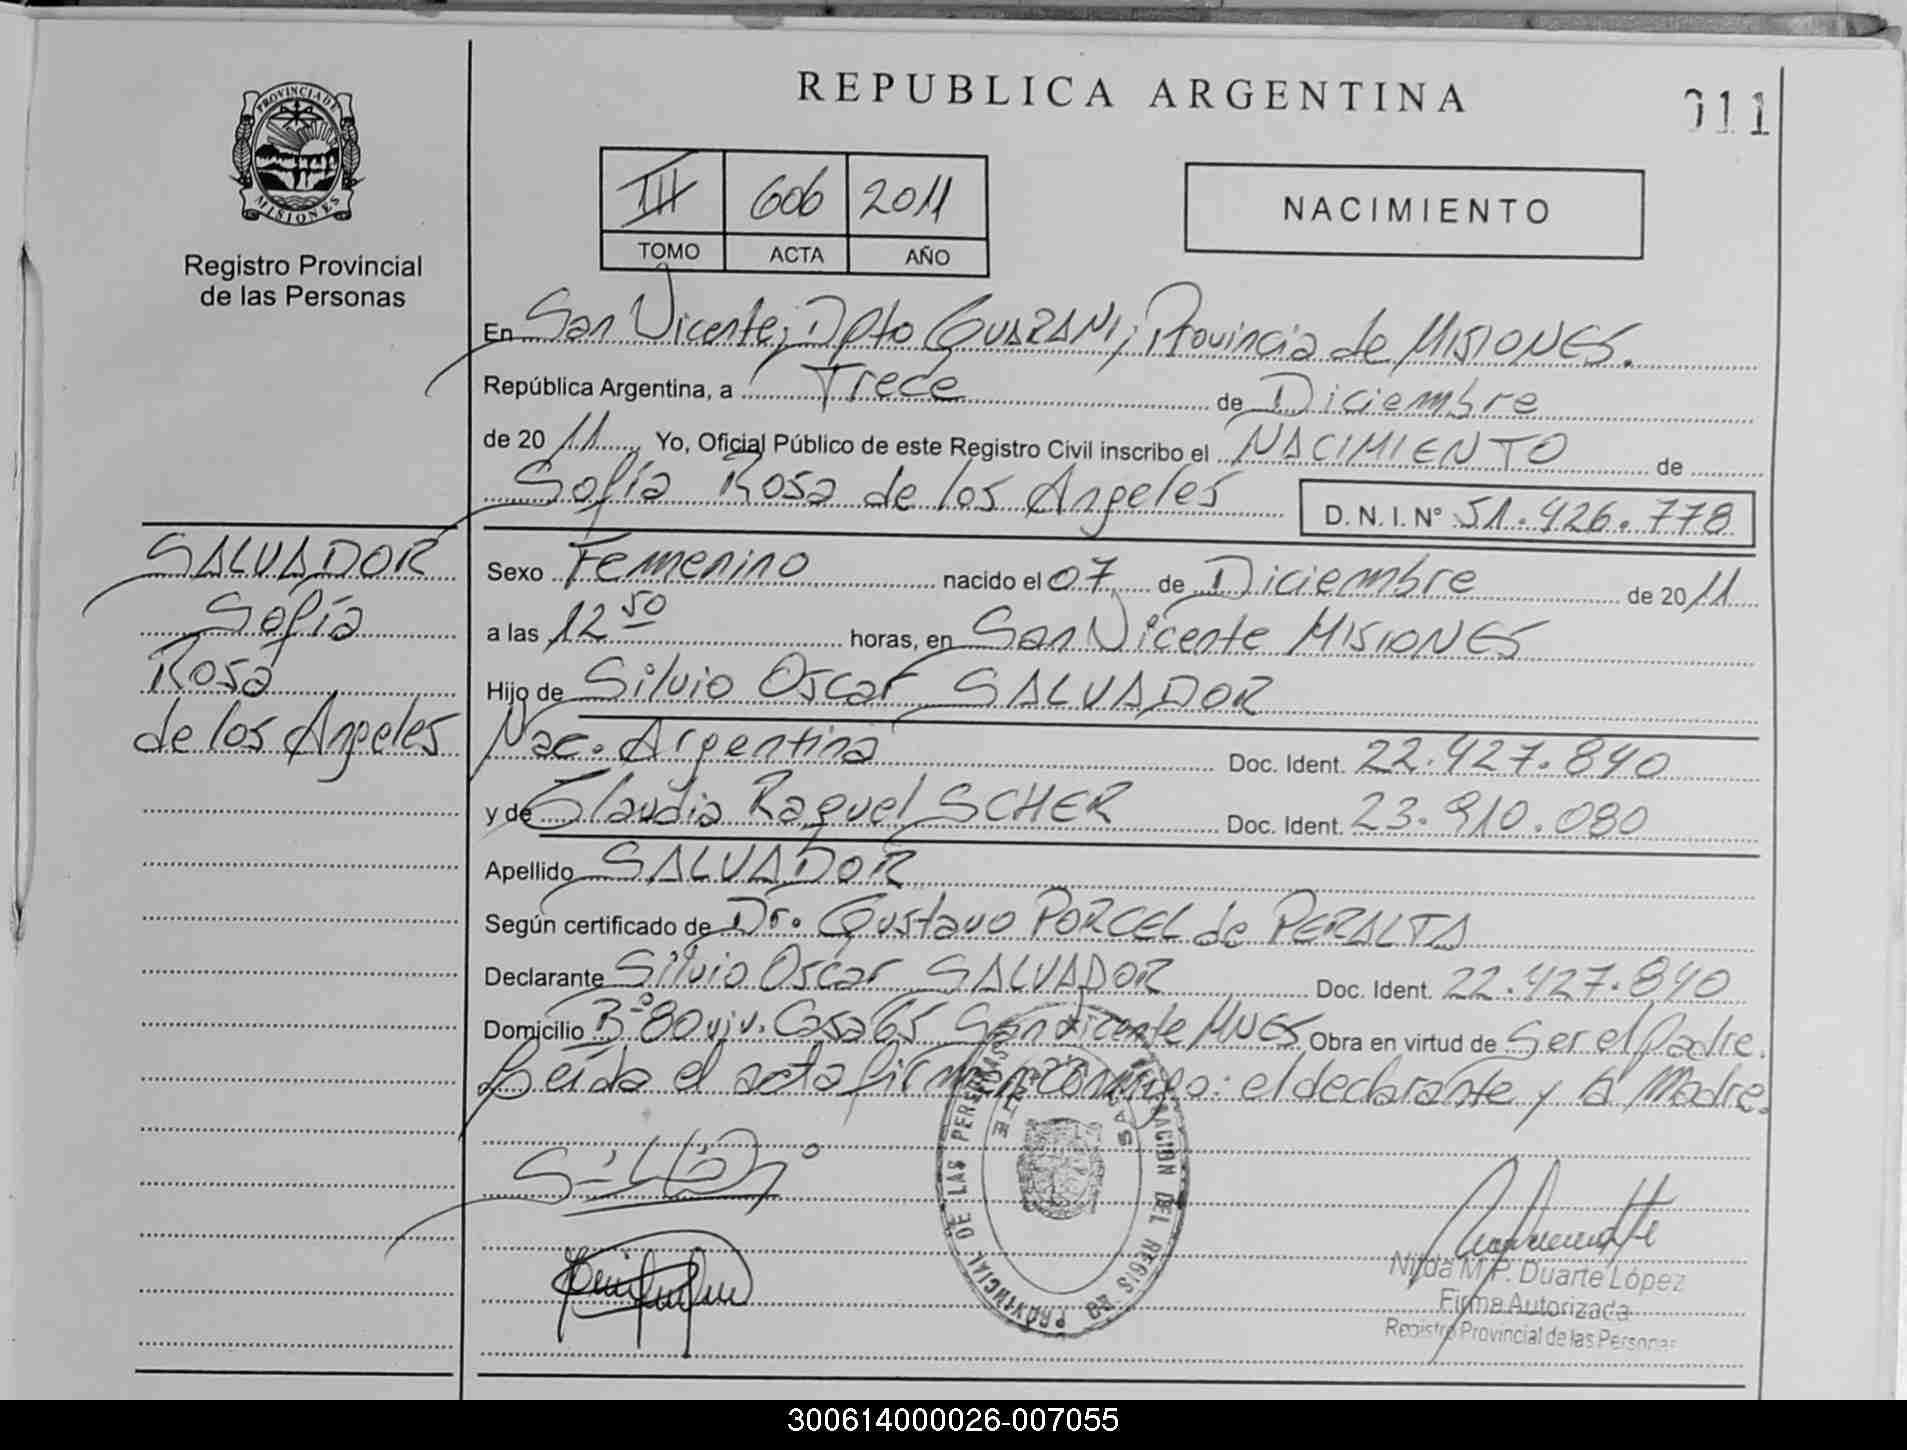 REPUBLICA ARGENTINA
011
PROVINCIA DE MISIONES
Registro Provincial
de las Personas
III 606 2011
TOMO ACTA AÑO
NACIMIENTO
En San Vicente; Dpto GUARANI; Provincia de MISIONES.
República Argentina, a Trece de Diciembre
de 2011 Yo, Oficial Público de este Registro Civil inscribo el NACIMIENTO de
Sofía Rosa de los Angeles D.N.I. Nº 51.426.778
SALVADOR
Sofía
Rosa
de los Angeles
Sexo Femenino nacido el 07 de Diciembre de 2011
a las 12 50 horas, en San Vicente MISIONES
Hijo de Silvio Oscar SALVADOR
Nac. Argentina Doc. Ident. 22.427.840
y de Claudia Raquel SCHER Doc. Ident. 23.910.080
Apellido SALVADOR
Según certificado de Dr. Gustavo PORCEL de PERALTA
Declarante Silvio Oscar SALVADOR Doc. Ident. 22.427.840
Domicilio Bº 80 viv. Casa 65 San Vicente MNES Obra en virtud de Ser el Padre.
Leída el acta firman conmigo: el declarante y la Madre.
PROVINCIAL DE LAS PERSONAS
Nilda M.P. Duarte López
Firma Autorizada
Registro Provincial de las Personas
300614000026-007055